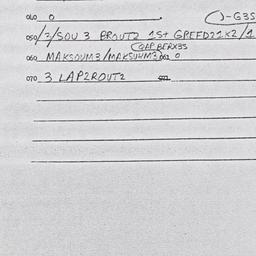 060 0 )-G3S
050/2/SOU 3 BROUT2 1S+ GREFD21K2/1
(QAP BERX3S
060 MAKSOUM3/MAKSUUM3) 061 0
070 3 LAP2ROUT2